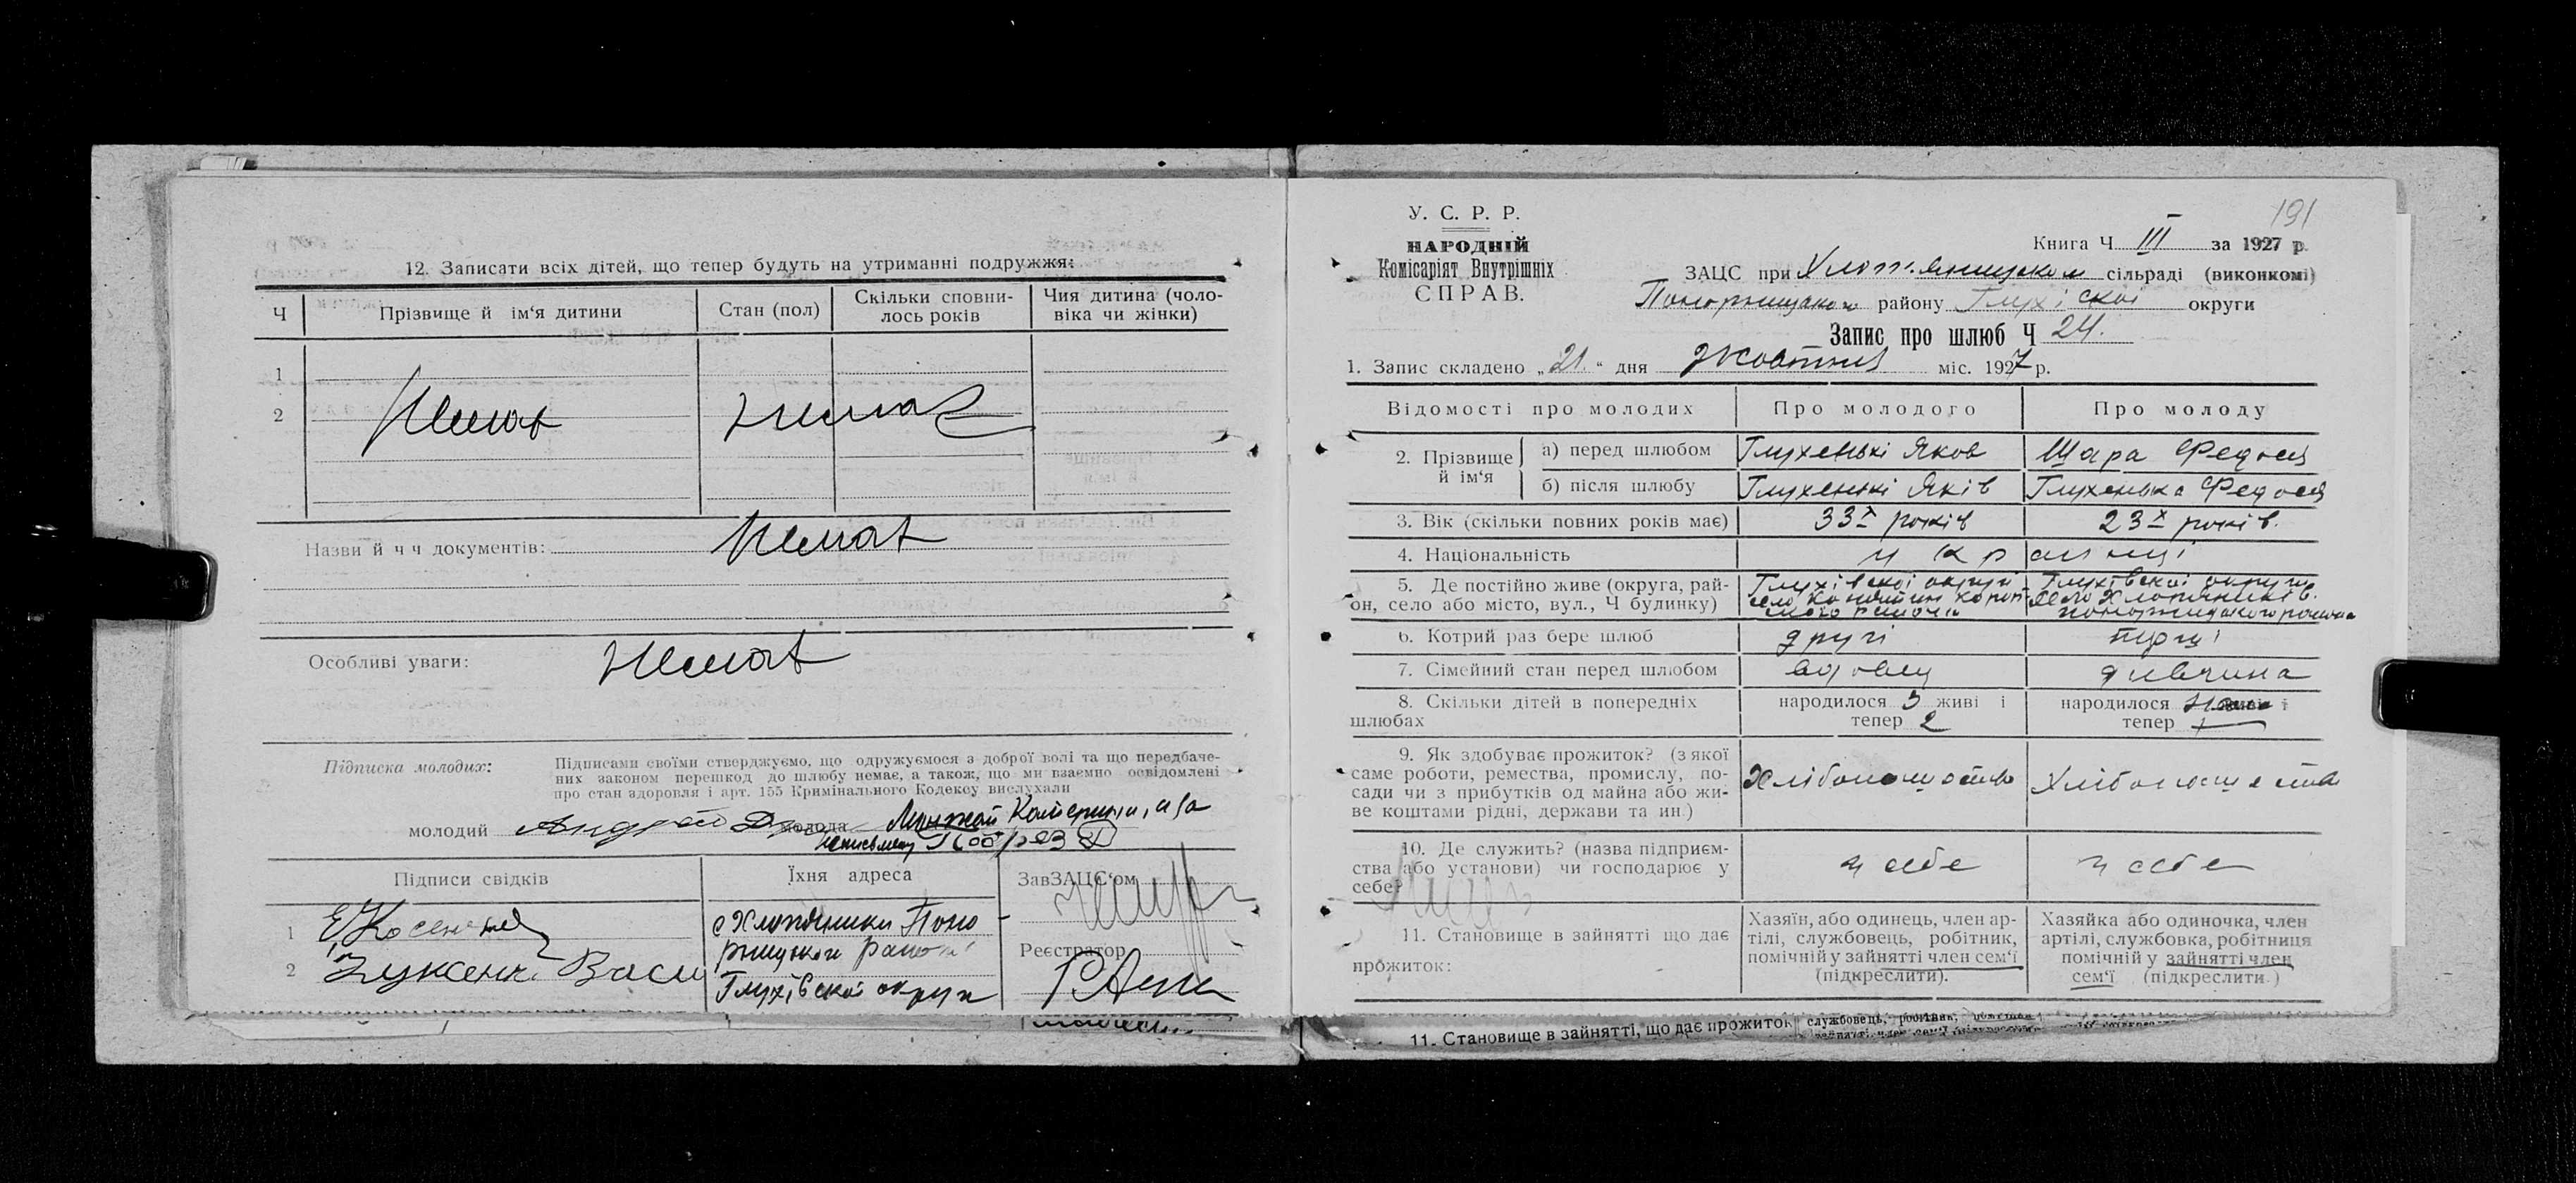 12. Записати всіх дітей, що тепер будуть на утриманні подружжя:
Ч
Прізвище й ім'я дитини
Стан (пол)
Скільки сповни-
лось років
Чия дитина (чоло-
віка чи жінки)
1
2
Немає
немає
Назви й ч ч документів: Немає
Особливі уваги: Немає
Підписка молодих:
Підписами своїми стверджуємо, що одружуємося з доброї волі та що передбаче-
них законом перешкод до шлюбу немає, а також, що ми взаємно освідомлені
про стан здоровля і арт. 155 Кримінального Кодексу вислухали
молодий Андрей
молода
Підписи свідків
Їхня адреса
ЗавЗАЦС'ом
1
с Хлопяники Поно
рницького
Реєстратор
2
Глухівської округи
У. С. Р. Р.
НАРОДНІЙ
Комісаріят Внутрішніх
СПРАВ.
191
Книга Ч III за 1927 р.
ЗАЦС при сільраді (виконкомі)
Понорницького району округи
Запис про шлюб Ч 24.
1. Запис складено „21“ дня Жовтня міс. 1927 р.
Відомості про молодих
Про молодого
Про молоду
2. Прізвище
й ім'я
а) перед шлюбом
Глухенькі Яков
Шара Федося
б) після шлюбу
Глухенькі Яків
Глухенька Федося
3. Вік (скільки повних років має)
33х років
23х років.
4. Національність
українці
5. Де постійно живе (округа, рай-
он, село або місто, вул., Ч будинку)
Глухівської округи
село
Глухівської округи
село Хлопяників
понорницького района
6. Котрий раз бере шлюб
другі
перші
7. Сімейний стан перед шлюбом
вдовец
дивчина
8. Скільки дітей в попередніх
шлюбах
народилося 3 живі і
тепер 2
народилося живі і
тепер
9. Як здобуває прожиток? (з якої
саме роботи, ремества, промислу, по-
сади чи з прибутків од майна або жи-
ве коштами рідні, держави та ин.)
Хлібопашество
Хлібопашество
10. Де служить? (назва підприєм-
ства або установи) чи господарює у
себе?
у себе
у себе
11. Становище в зайнятті що дає
прожиток:
Хазяїн, або одинець, член ар-
тілі, службовець, робітник,
помічній у зайнятті член сем'ї
(підкреслити).
Хазяйка або одиночка, член
артілі, службовка, робітниця
помічній у зайнятті член
сем'ї (підкреслити.)
11. Становище в зайнятті, що дає прожиток
службовець, робітник,